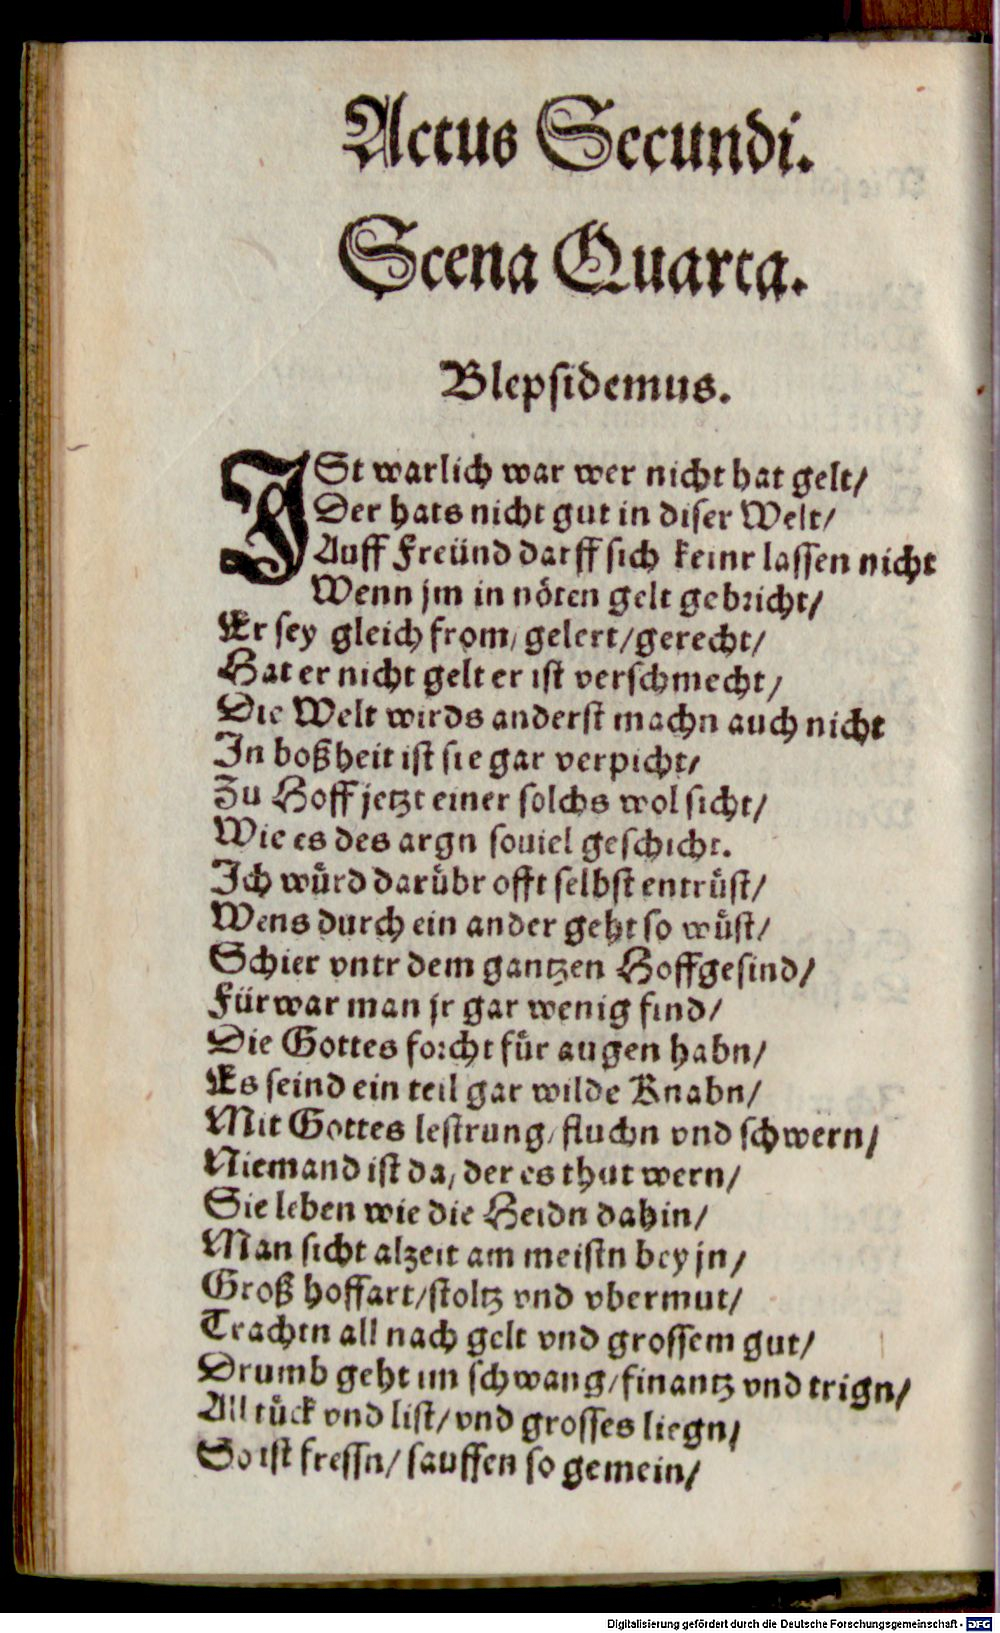 Actus Secundi.
Scena Quarta.
Blepsidemus.
ISt warlich war wer nicht hat gelt/
Der hats nicht gut in diser Welt/
Auff Freünd darff sich keinr lassen nicht
Wenn jm in nöten gelt gebricht/
Er sey gleich from/ gelert/gerecht/
Hat er nicht gelt er ist verschmecht/
Die Welt wirds anderst machn auch nicht
In boßheit ist sie gar verpicht/
Zu Hoff jetzt einer solchs wol sicht/
Wie es des argn souiel geschicht.
Ich wuͤrd daruͤbr offt selbst entruͤst/
Wens durch ein ander geht so wuͤst/
Schier vntr dem gantzen Hoffgesind/
Fürwar man jr gar wenig find/
Die Gottes forcht fuͤr augen habn/
Es seind ein teil gar wilde Knabn/
Mit Gottes lestrung/ fluchn vnd schwern/
Niemand ist da/ der es thut wern/
Sie leben wie die Heidn dahin/
Man sicht alzeit am meistn bey jn/
Groß hoffart/stoltz vnd vbermut/
Trachtn all nach gelt vnd grossem gut/
Drumb geht im schwang/finantz vnd trign/
All tuͤck vnd list/ vnd grosses liegn/
So ist fressn/ sauffen so gemein/
Digitalisierung gefördert durch die Deutsche Forschungsgemeinschaft - DFG